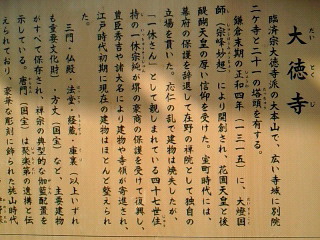 だいとくじ
大徳寺
臨済宗大徳寺派の大本山で、広い寺域に別院
二ケ寺と二十一の塔頭を有する。
鎌倉末期の正和四年(一三一五)に、大燈国
師(宗峰妙超)により開創され、花園天皇と後
醍醐天皇の厚い信仰を受けた。室町時代には、
幕府の保護を辞退して在野の禅院として独自の
立場を貫いた。応仁の乱で建物は焼失したが、
「一休さん」として親しまれている四十七世住
持の一休宗純が堺の豪商の保護を受けて復興し、
豊臣秀吉や諸大名により建物や寺領が寄進され、
江戸時代初期に現在の建物はほとんど整えられ
た。
三門・仏殿・法堂・経蔵・庫裏(以上いずれ
も重要文化財)・方丈(国宝)など、主要建物
がすべて保存され、禅宗の典型的な伽藍配置を
示している。唐門(国宝)は聚楽第の遺構と伝
えられており、豪華な彫刻に飾られた桃山時代